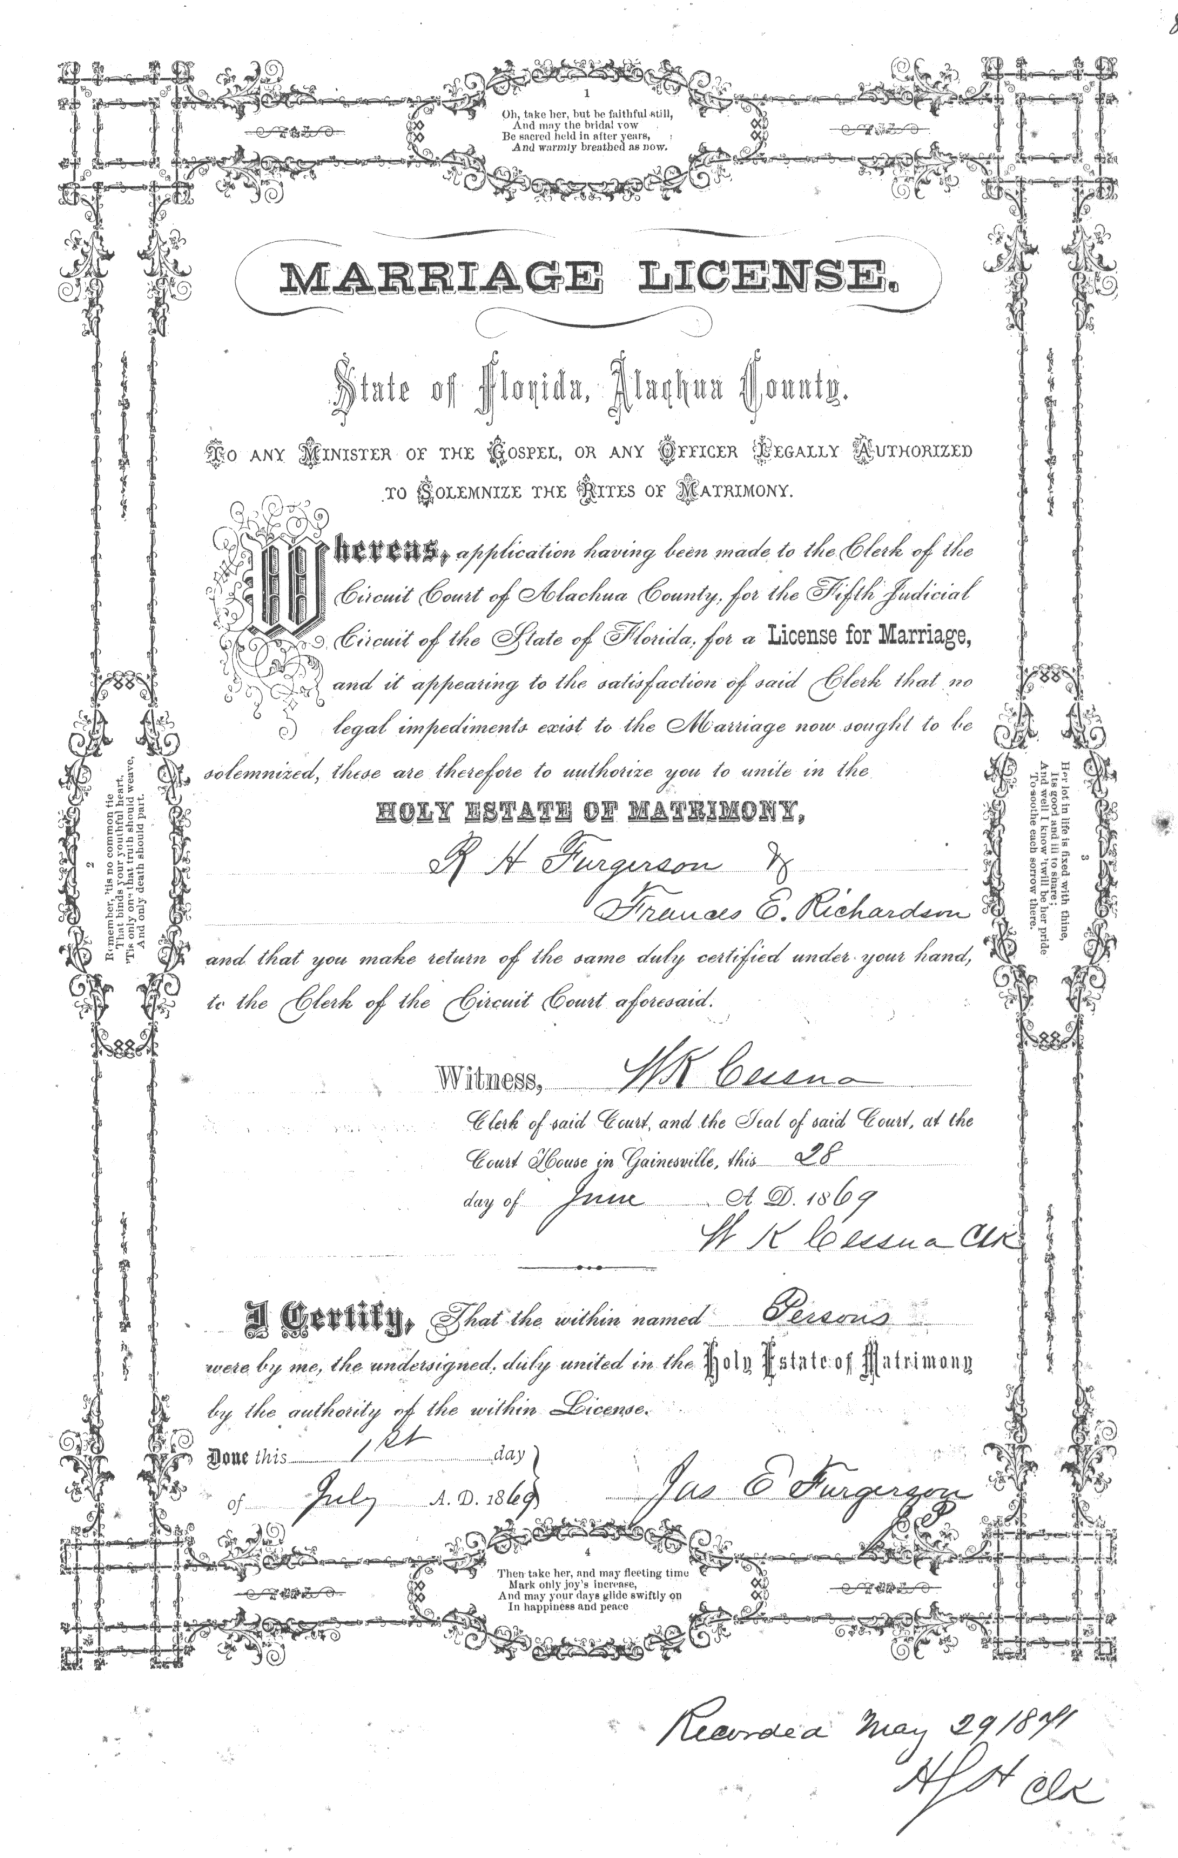 1
Oh, take her, but be faithful still,
And may the bridal vow
Be sacred held in after years,
And warmly breathed as now.
MARRIAGE LICENSE.
State of Florida, Alachua County.
To any Minister of the Gospel, or any Officer Legally Authorized
to Solemnize the Rites of Matrimony.
Whereas, application having been made to the Clerk of the
Circuit Court of Alachua County, for the Fifth Judicial
Circuit of the State of Florida, for a License for Marriage,
and it appearing to the satisfaction of said Clerk that no
legal impediments exist to the Marriage now sought to be
solemnized, these are therefore to authorize you to unite in the
HOLY ESTATE OF MATRIMONY,
R H Furgerson &
Frances E. Richardson
and that you make return of the same duly certified under your hand,
to the Clerk of the Circuit Court aforesaid.
Witness, W K Cessna
Clerk of said Court, and the Seal of said Court, at the
Court House in Gainesville, this 28
day of June A. D. 1869
W K Cessna Clk
I Certify, That the within named Persons
were by me, the undersigned, duly united in the Holy Estate of Matrimony
by the authority of the within License.
Done this 1st day
of July A. D. 1869
Jas E Furgerson
J P
2
Remember, 'tis no common tie
That binds your youthful heart.
'Tis only on* that truth should weave,
And only death should part.
3
Her lot in life is fixed with thine,
Its good and ill to share;
And well I know 'twill be her pride
To soothe each sorrow there.
4
Then take her, and may fleeting time
Mark only joy's increase,
And may your days glide swiftly on
In happiness and peace
Recorded May 29 1871
Clk
8